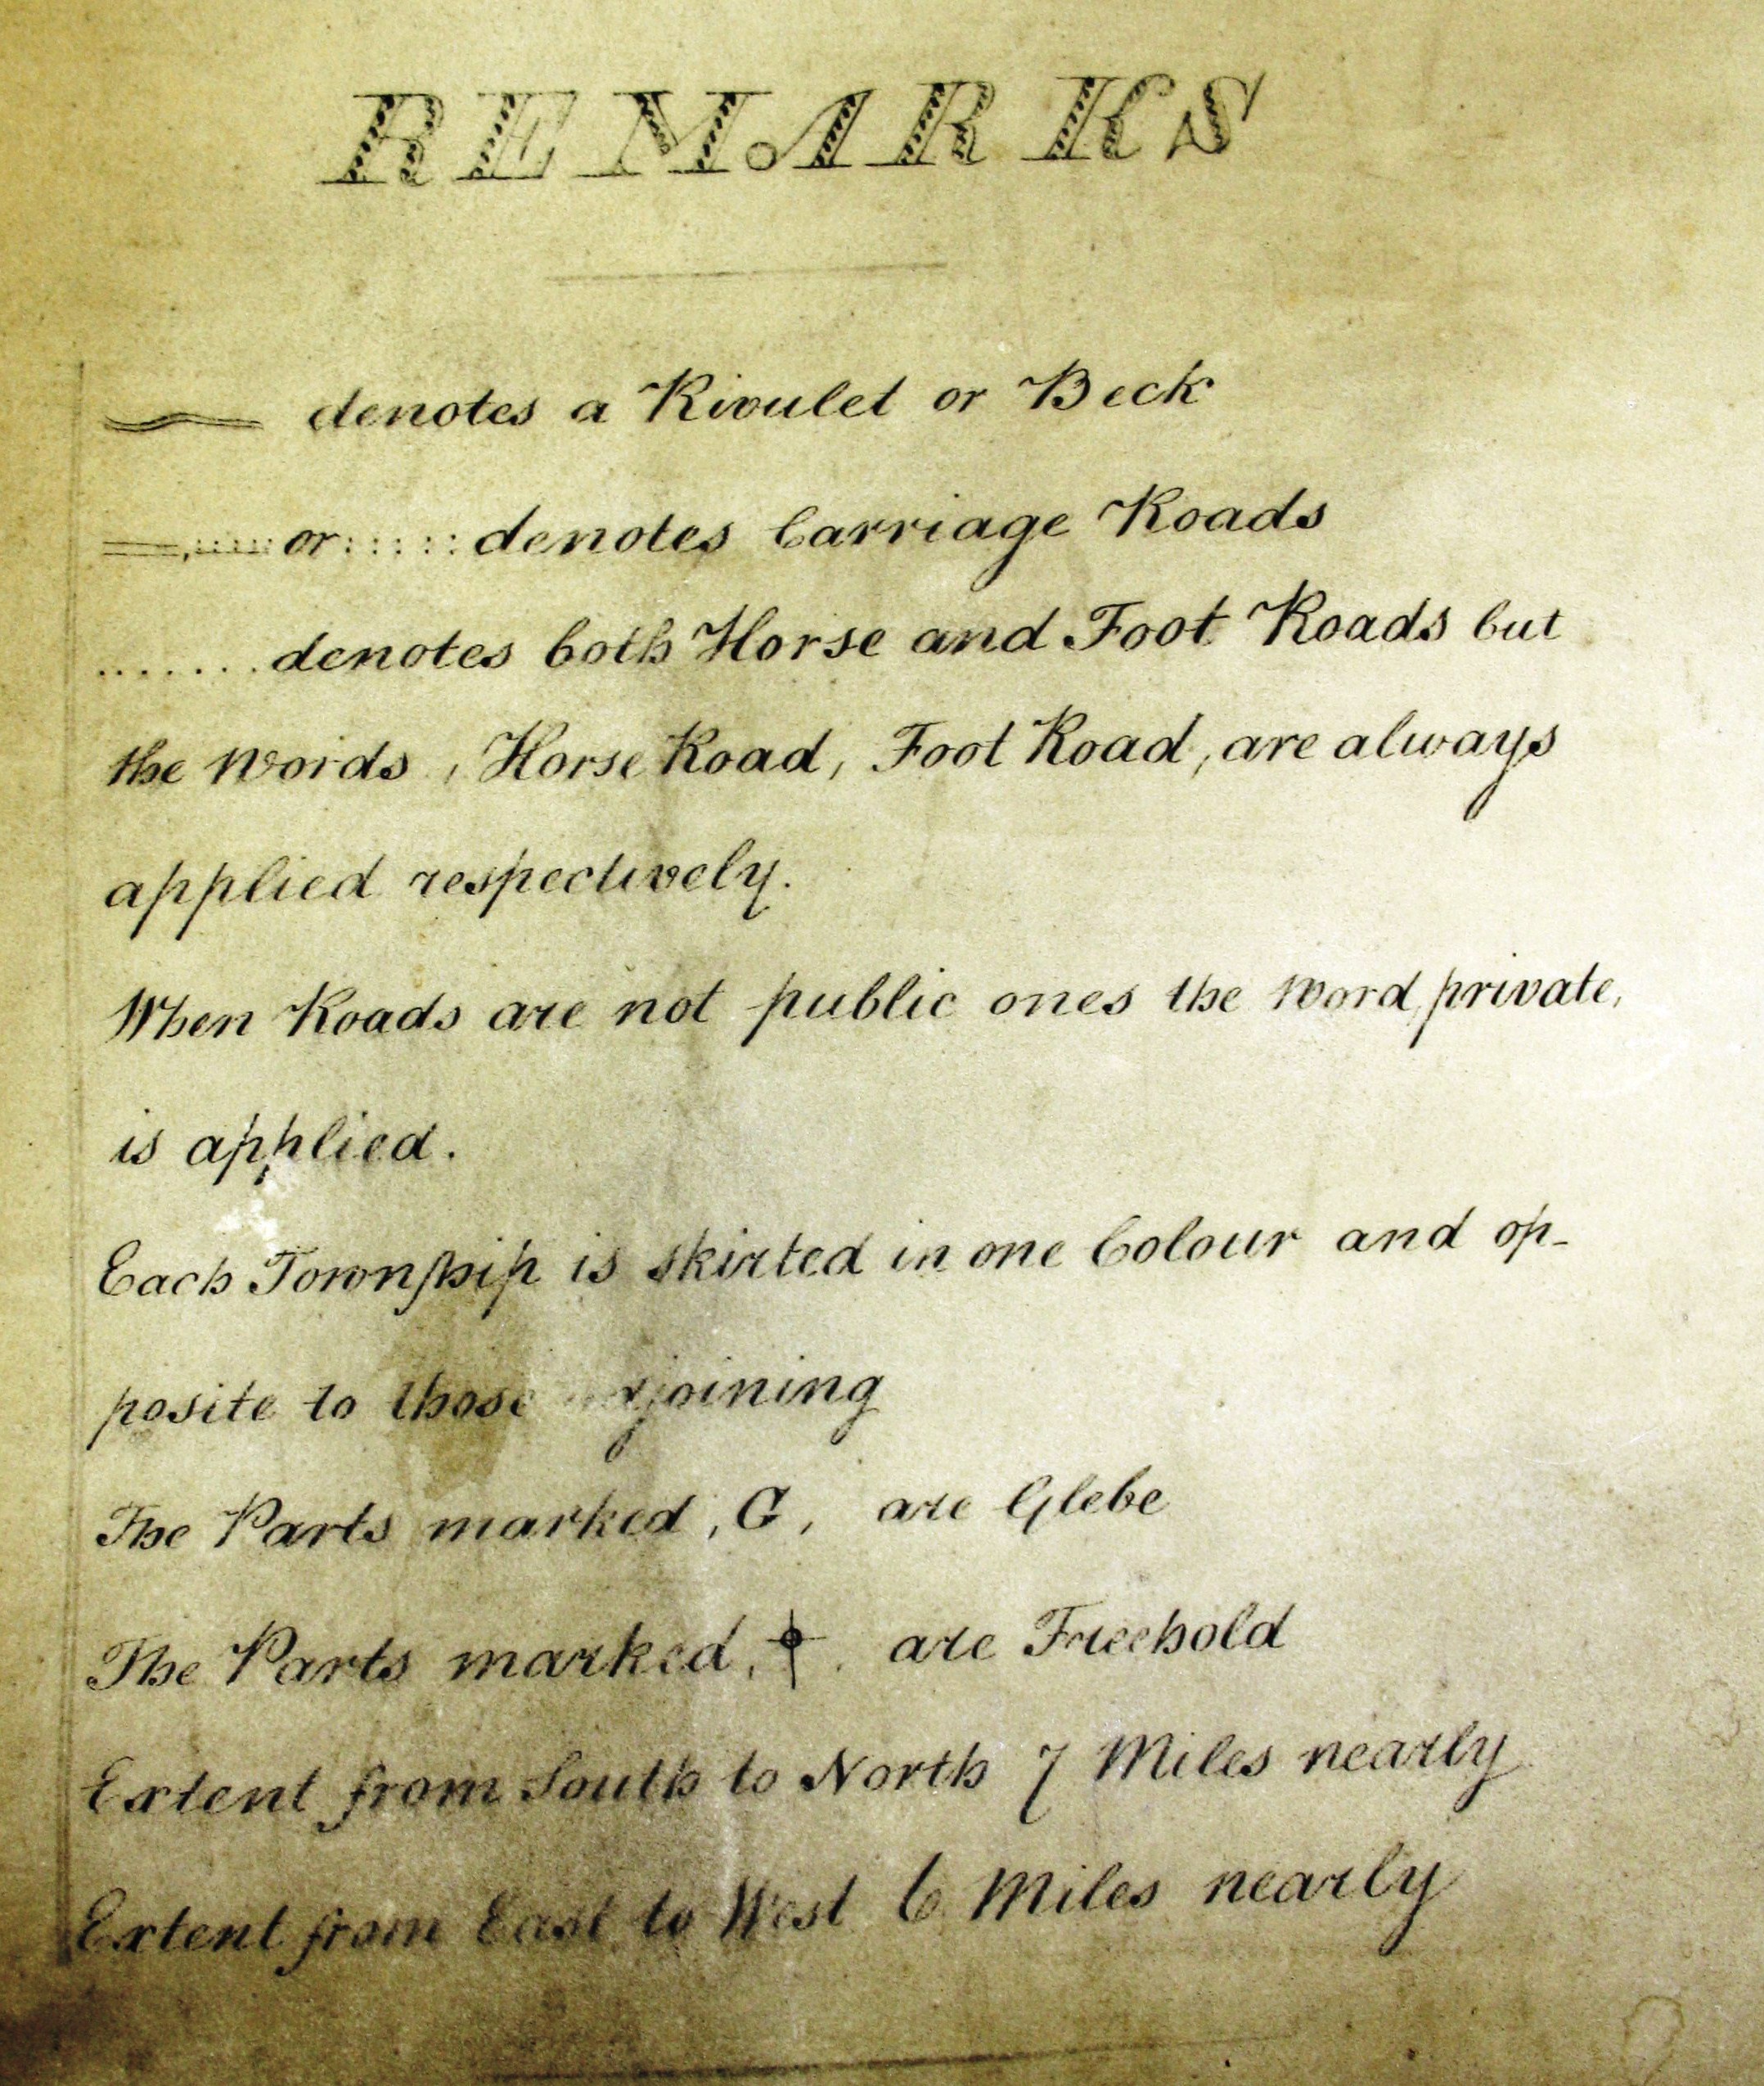 REMARKS
denotes a Rivulet or Beck
or denotes Carriage Roads
....... denotes both Horse and Foot Roads but
the words , Horse Road, Foot Road, are always
applied respectively.
When Roads are not public ones the word, private,
is applied.
Each Townſhip is skirted in one Colour and op-
posite to those joining
The Parts marked , G , are Glebe
The Parts marked, , are Freehold
Extent from South to North 7 Miles nearly
Extent from East to West 6 Miles nearly